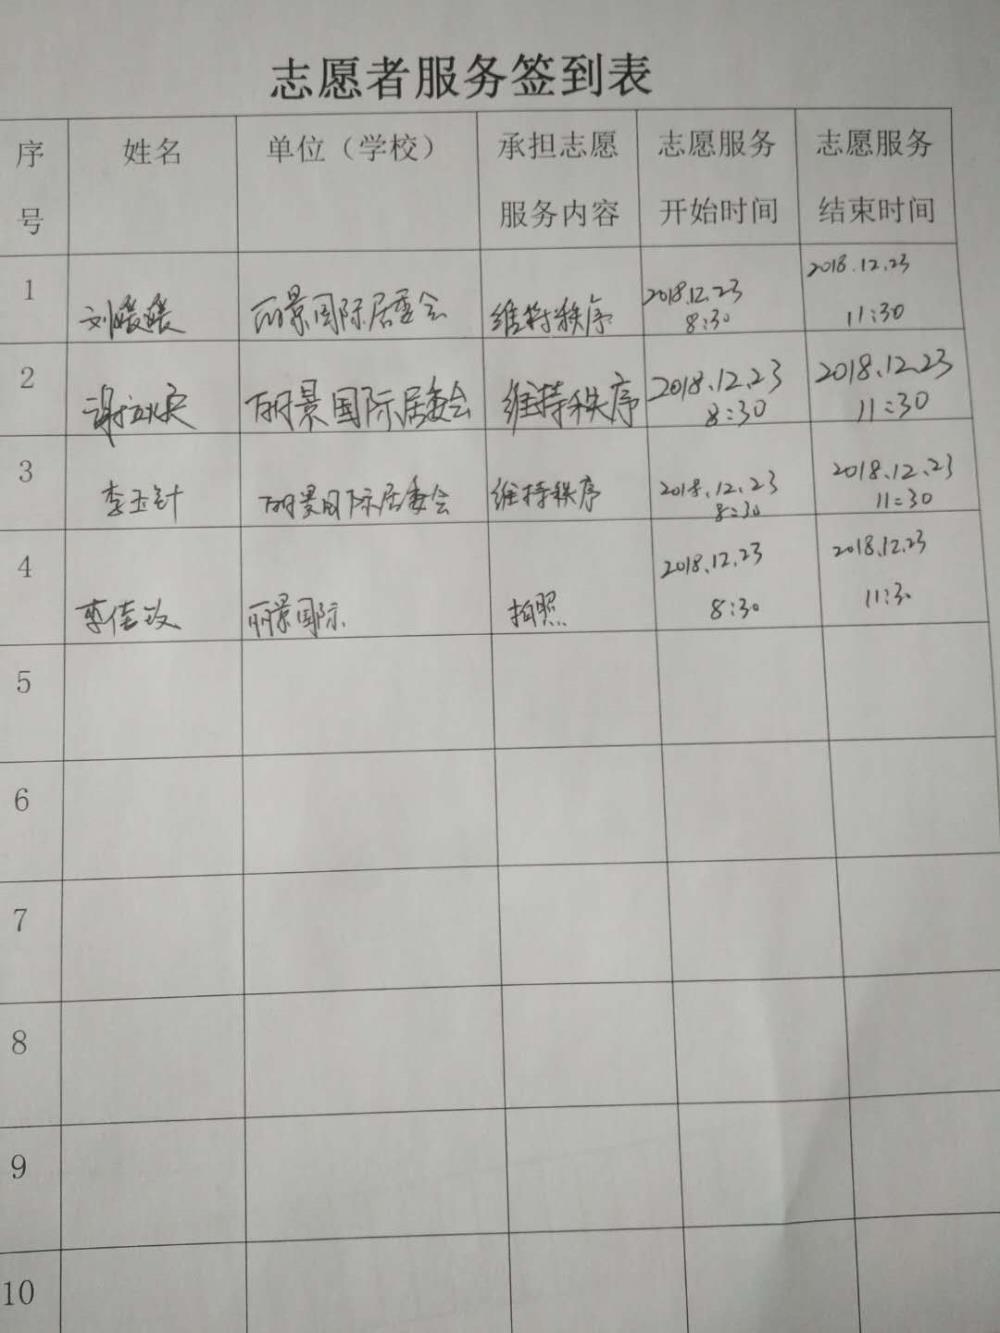 志愿者服务签到表
序号 姓名 单位（学校） 承担志愿服务内容 志愿服务开始时间 志愿服务结束时间
1 刘媛媛 丽景国际居委会 维持秩序 2018.12.23 8:30 2018.12.23 11:30
2 谢 丽景国际居委会 维持秩序 2018.12.23 8:30 2018.12.23 11:30
3 李玉针 丽景国际居委会 维持秩序 2018.12.23 8:30 2018.12.23 11:30
4 李佳 丽景国际 拍照 2018.12.23 8:30 2018.12.23 11:30
5
6
7
8
9
10